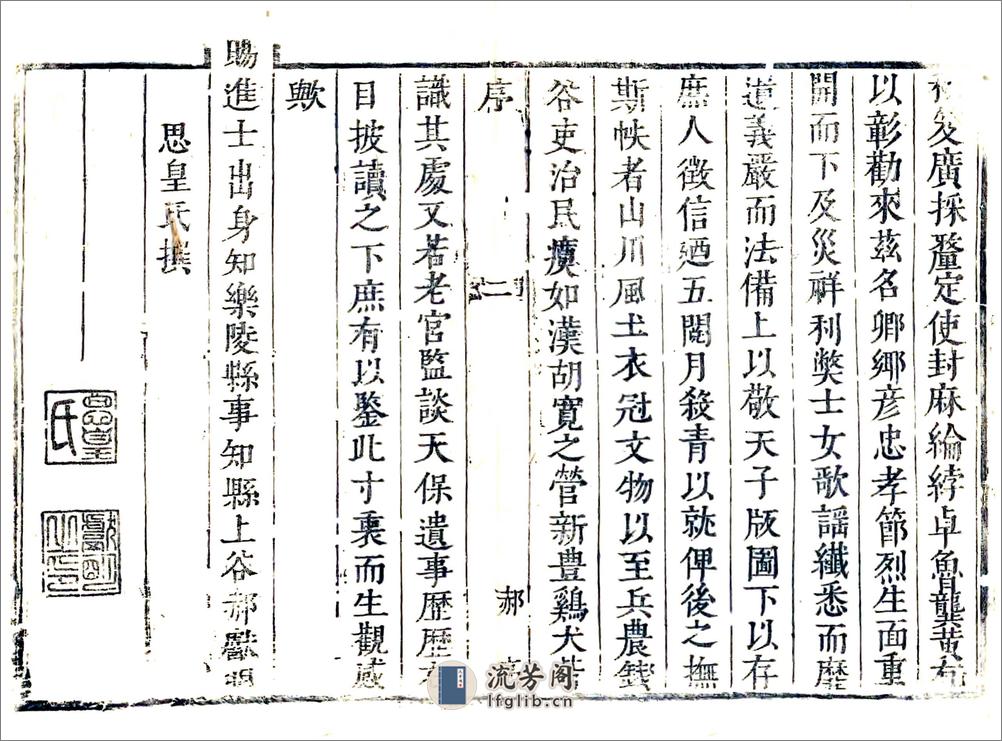 廣採釐定使封麻綸綍卓魯龔黃有
以彰勸來茲名卿鄉彥忠孝節烈生面重
開而下及災祥利弊士女歌謠纖悉而靡
道義嚴而法備上以敬天子版圖下以存
庶人徵信廼五閱月殺青以就俾後之撫
斯帙者山川風土衣冠文物以至兵農錢
谷吏治民瘼如漢胡寬之營新豐鷄犬皆
序 二 郝
識其處又若老宮監談天保遺事歷歷在
目披讀之下庶有以鑒此寸衷而生觀感
歟
賜進士出身知樂陵縣事知縣上谷郝獻明
思皇氏撰
思皇氏
獻明之印
流芳阁
lfglib.cn